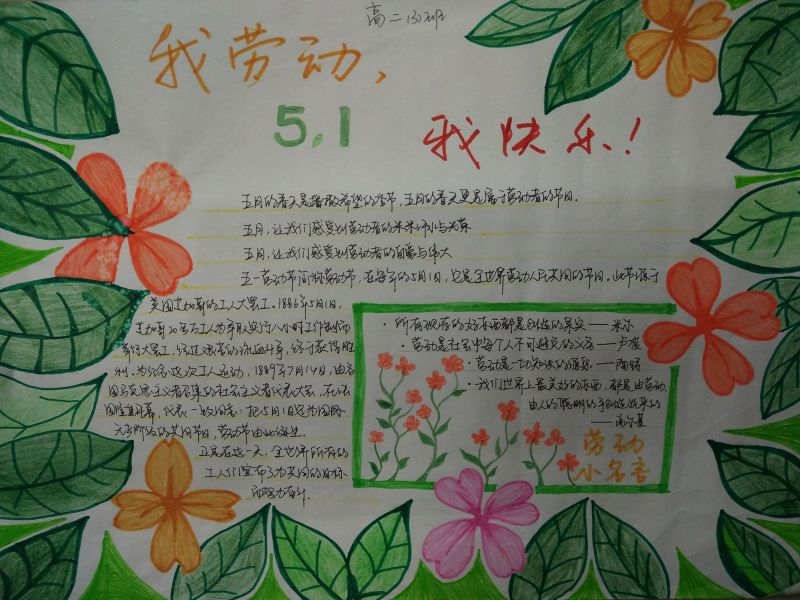 高二(3)班
我劳动,
5.1
我快乐!
五月的春天是播散希望的季节,五月的春天更是属于劳动者的节日。
五月,让我们感受到劳动者的
五月,让我们感受到劳动者的自豪与伟大
五一劳动节简称劳动节,在每年的5月1日,它是全世界劳动人民共同的节日。此节源于
美国芝加哥的工人大罢工。1886年5月1日,
芝加哥20多万工人为争取实行八小时工作制而
举行大罢工,经过艰苦的流血斗争,终于获得胜
利。为纪念这次工人运动,1889年7月14日,由各
国马克思主义者召集的社会主义者代表大会,在法
国隆重开幕,代表一致同意:把5月1日定为国际
无产阶级的共同节日,劳动节由此诞生。
正是在这一天,全世界所有的
工人们宣布了为共同的目标
而努力奋斗。
·所有现存的好东西都是创造的果实——米尔
·劳动是社会中每个人不可避免的义务——卢梭
·劳动是一切知识的源泉——陶铸
·我们世界上最美好的东西,都是由劳动、
由人的聪明的手创造出来的
——高尔基
劳动
小名言